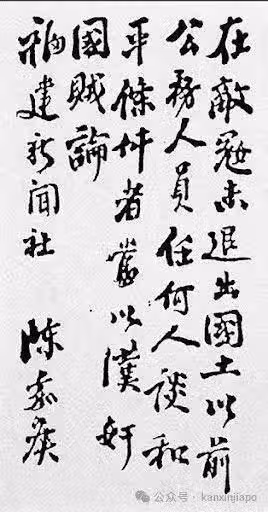 在敵寇未退出國土以前
公務人員任何人談和
平條件者當以漢奸
國賊論
福建新聞社 陳嘉庚
公众号 · kanxinjiapo